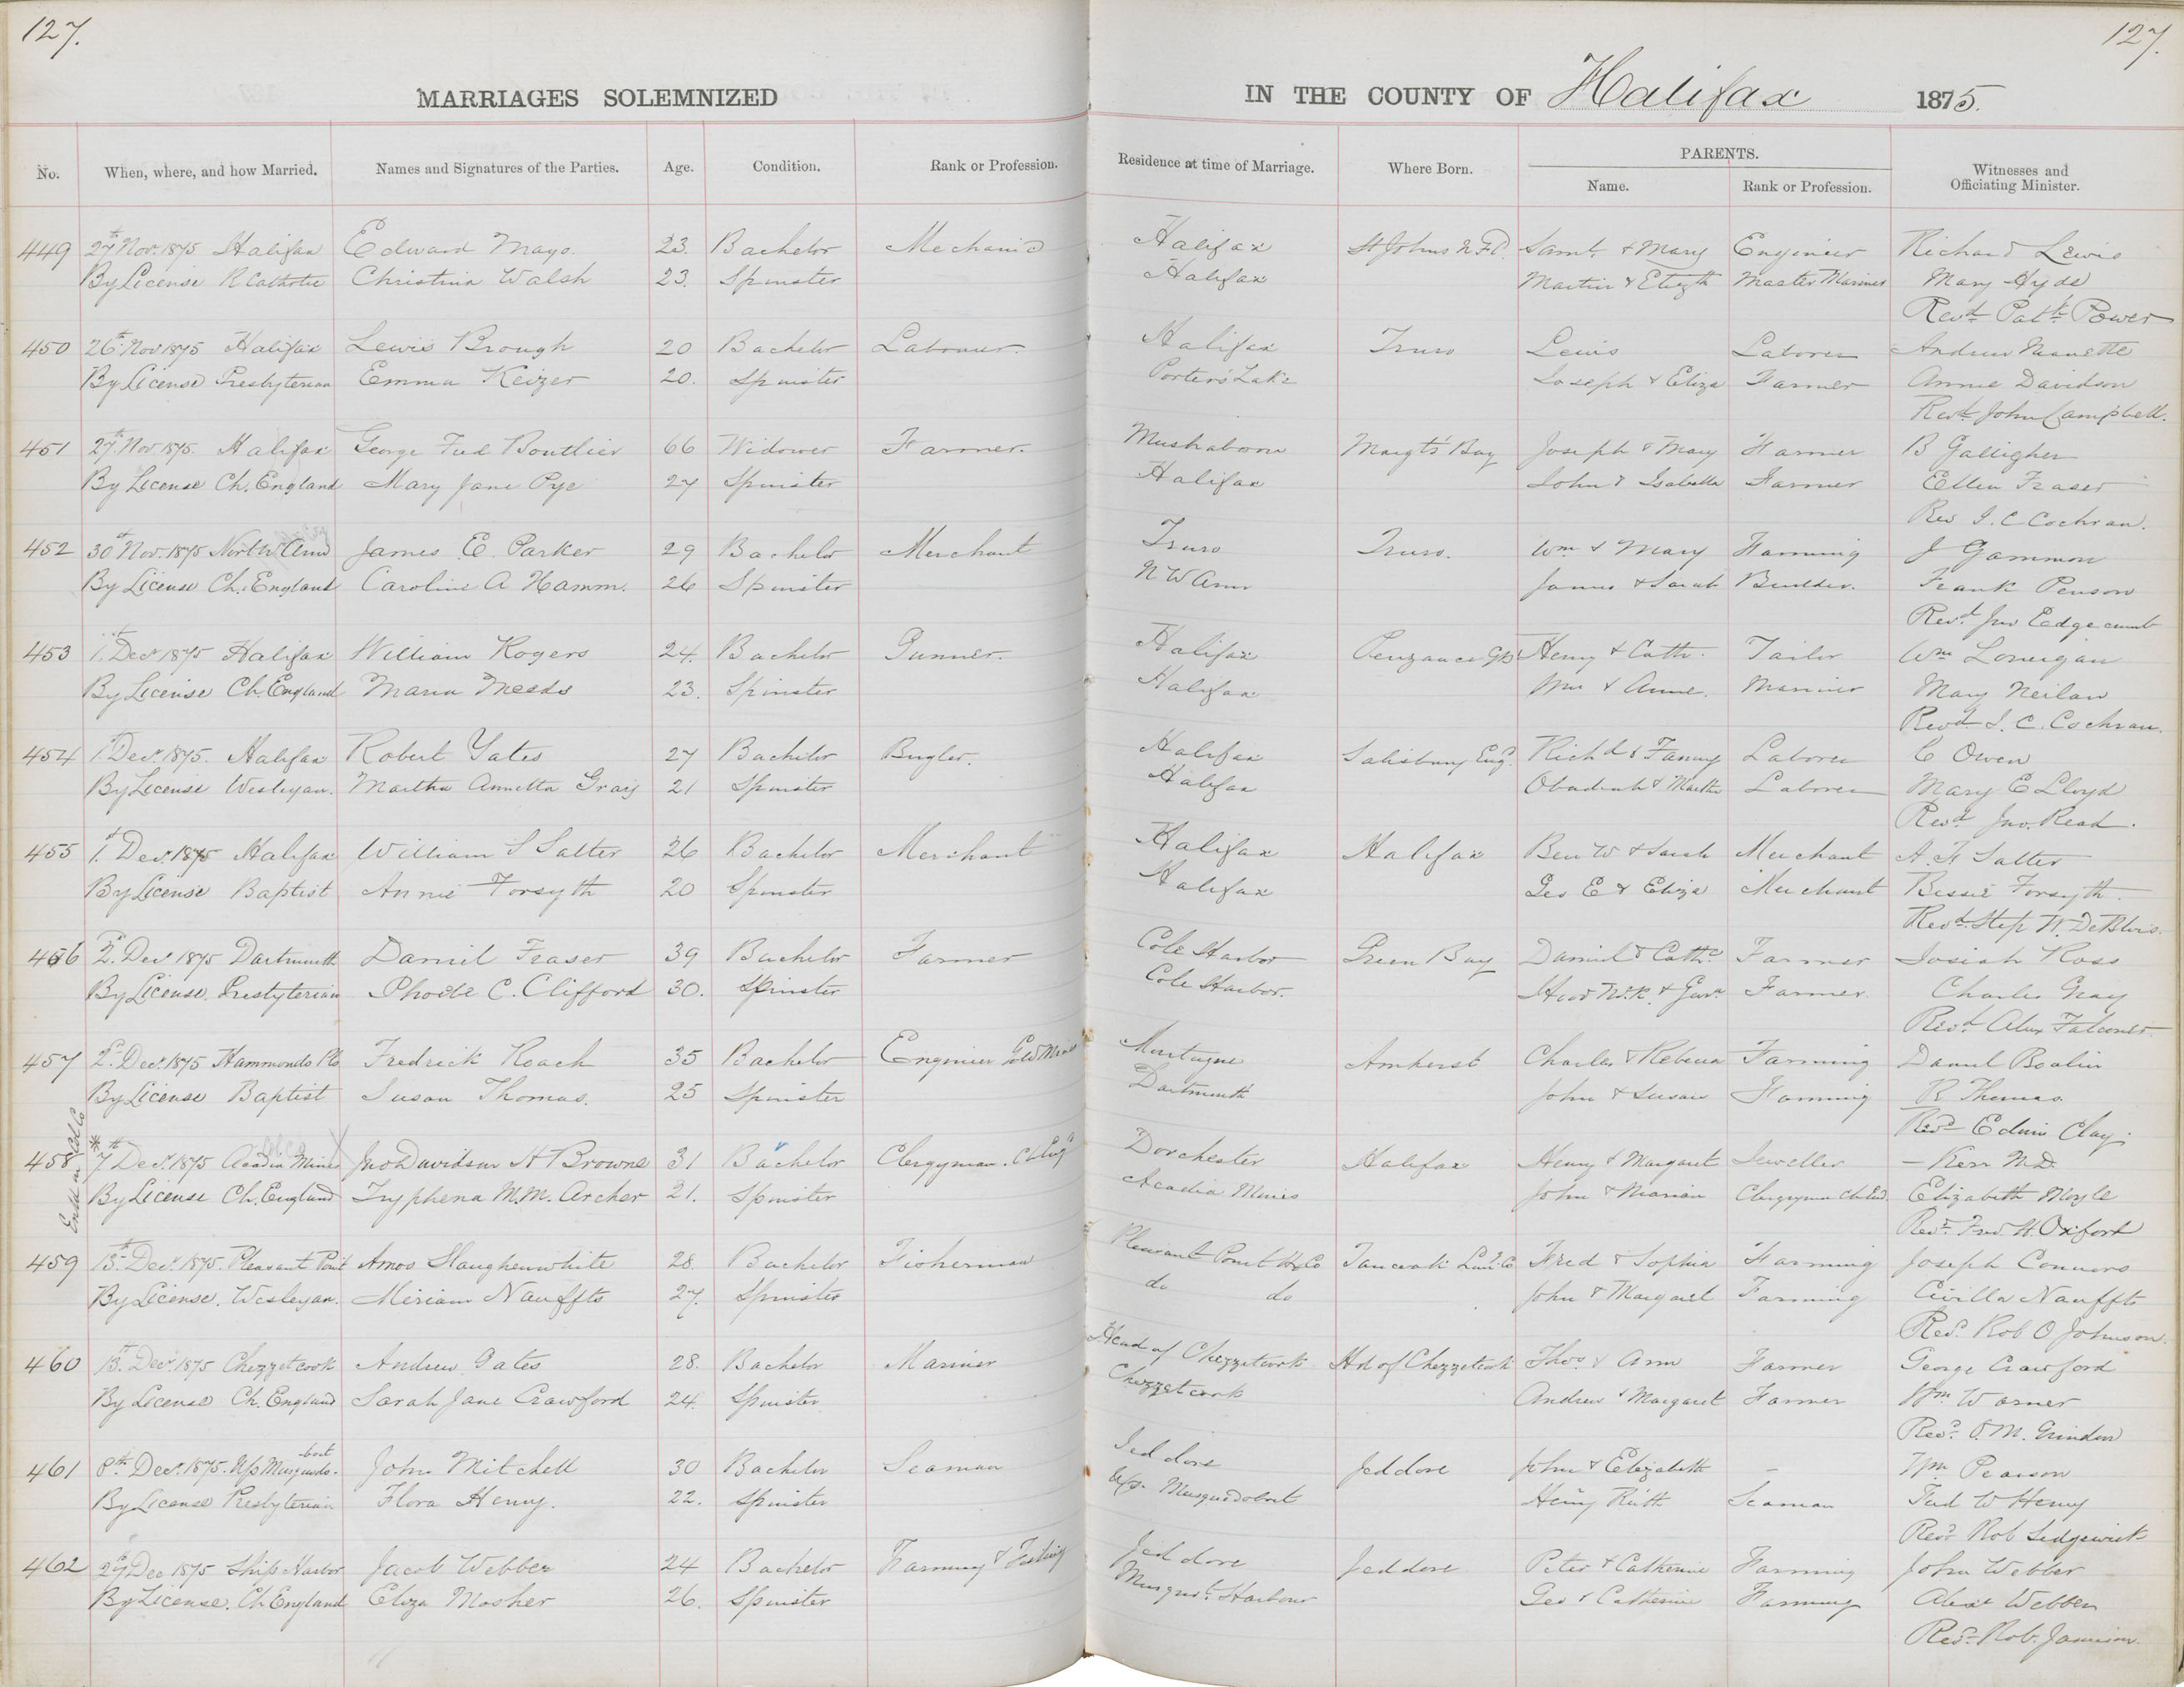 127.
127.
MARRIAGES SOLEMNIZED IN THE COUNTY OF Halifax 1875.
No. When, where, and how Married. Names and Signatures of the Parties. Age. Condition. Rank or Profession. Residence at time of Marriage. Where Born. PARENTS. Name. Rank or Profession. Witnesses and Officiating Minister.
449 27th Nov. 1875 Halifax Edward Mayo 23. Bachelor Mechanic Halifax St Johns N.Fd. Saml. & Mary Engineer Richard Lewis
By License R Catholic Christina Walsh 23. Spinster Halifax Martin & Elizth Master Mariner Mary Hyde
Revd. Patk. Power
450 26th Nov 1875 Halifax Lewis Brough 20 Bachelor Labourer. Halifax Truro Lewis Laborer Andrew
By License Presbyterian Emma Keizer 20. Spinster Porters Lake Joseph & Eliza Farmer Annie Davidson
Revd. John Campbell.
451 27th Nov. 1875. Halifax George Fred Boutlier 66 Widower Farmer. Mushaboon Margts Bay Joseph & Mary Farmer B Galligher
By License Ch. England Mary Jane Pye 27 Spinster Halifax John & Isabella Farmer Ellen Fraser
Rev J. C Cochran.
452 30th Nov. 1875 North W Arm James E. Parker 29 Bachelor Merchant Truro Truro. Wm & Mary Farming J Gammon
By License Ch. England Caroline A Hamm. 26 Spinster N W Arm James & Sarah Builder. Frank Penson
Revd. Jno Edgecumb
453 1st Decr 1875 Halifax William Rogers 24. Bachelor Gunner. Halifax Penzance GB Henry & Cath. Tailor Wm Lonergan
By License Ch. England Maria Meeds 23. Spinster Halifax Wm & Anne. Mariner Mary Neilan
Revd J. C. Cochran.
454 1st Decr. 1875. Halifax Robert Yates 27 Bachelor Bugler. Halifax Salisbury Engd. Richd & Fanny Laborer C Owen
By License Wesleyan. Martha Annetta Graig 21 Spinster Halifax Obadiah & Martha Laborer Mary E Lloyd
Revd. Jno. Read.
455 1st Decr. 1875 Halifax William S Salter 26 Bachelor Merchant Halifax Halifax Ben W & Sarah Merchant A. F Salter
By License Baptist Annie Forsyth 20 Spinster Halifax Geo E & Eliza Merchant Bessie Forsyth.
Revd. Step W. DeBlois.
456 2d. Decr 1875 Dartmouth Daniel Fraser 39 Bachelor Farmer Cole Harbor Green Bay Daniel & Cathe. Farmer Josiah Ross
By License. Presbyterian Phoebe C. Clifford 30. Spinster Cole Harbor. Farmer. Charles Gray
Revd. Alex Falconer
457 2d. Decr. 1875 Hammonds Pls Fredrick Roach 35 Bachelor Engineer Gold Mines Montague Amherst Charles & Rebecca Farming Daniel Boalin
By License Baptist Susan Thomas. 25 Spinster Dartmouth John & Susan Farming R Thomas.
Revd Edwin Clay.
458 * 7th Decr. 1875 Acadia Mines Jno Davidson H Browne 31 Bachelor Clergyman. Ch Engd Dorchester Halifax Henry & Margaret Jeweller – Kerr M.D.
By License Ch. England Tryphena M.M. Archer 21. Spinster Acadia Mines John & Marian Clergyman Ch End. Elizabeth Moyle
Revd. Fred. H. Oxfort
459 13th Decr. 1875. Pleasant Point Amos Slaughenwhite 28. Bachelor Fisherman Pleasant Point Hx Co Tancook Lun. Co Fred & Sophia Farming Joseph Conners
By License. Wesleyan. Miriam Nauffts 27. Spinster do do John & Margaret Farming Civilla Nauffts
Revd. Rob O Johnson.
460 13th. Decr. 1875 Chezzetcook Andrew Gates 28. Bachelor Mariner Head of Chezzetcook Hd of Chezzetcook Thos. & Ann Farmer George Crawford
By License Ch. England Sarah Jane Crawford 24. Spinster Chezzetcook Andrew & Margaret Farmer Wm Warner
Revd. O. M. Grindon
461 8th Decr. 1875. Up Musquodoboit. John Mitchell 30 Bachelor Seaman Jeddore Jeddore John & Elizabeth – Wm. Pearson
By License Presbyterian Flora Henry. 22. Spinster Up. Musquodoboit Henry Ruth Seaman Fred W Henry
Revd Rob Sedgewick
462 29th Dec 1875 Ship Harbor Jacob Webber 24 Bachelor Farming & Fishing Jeddore Jeddore Peter & Catherine Farming John Webber
By License. Ch England Eliza Mosher 26. Spinster Musqudt. Harbour Geo & Catherine Farming Alexr Webber
Revd. Rob. Jamison.